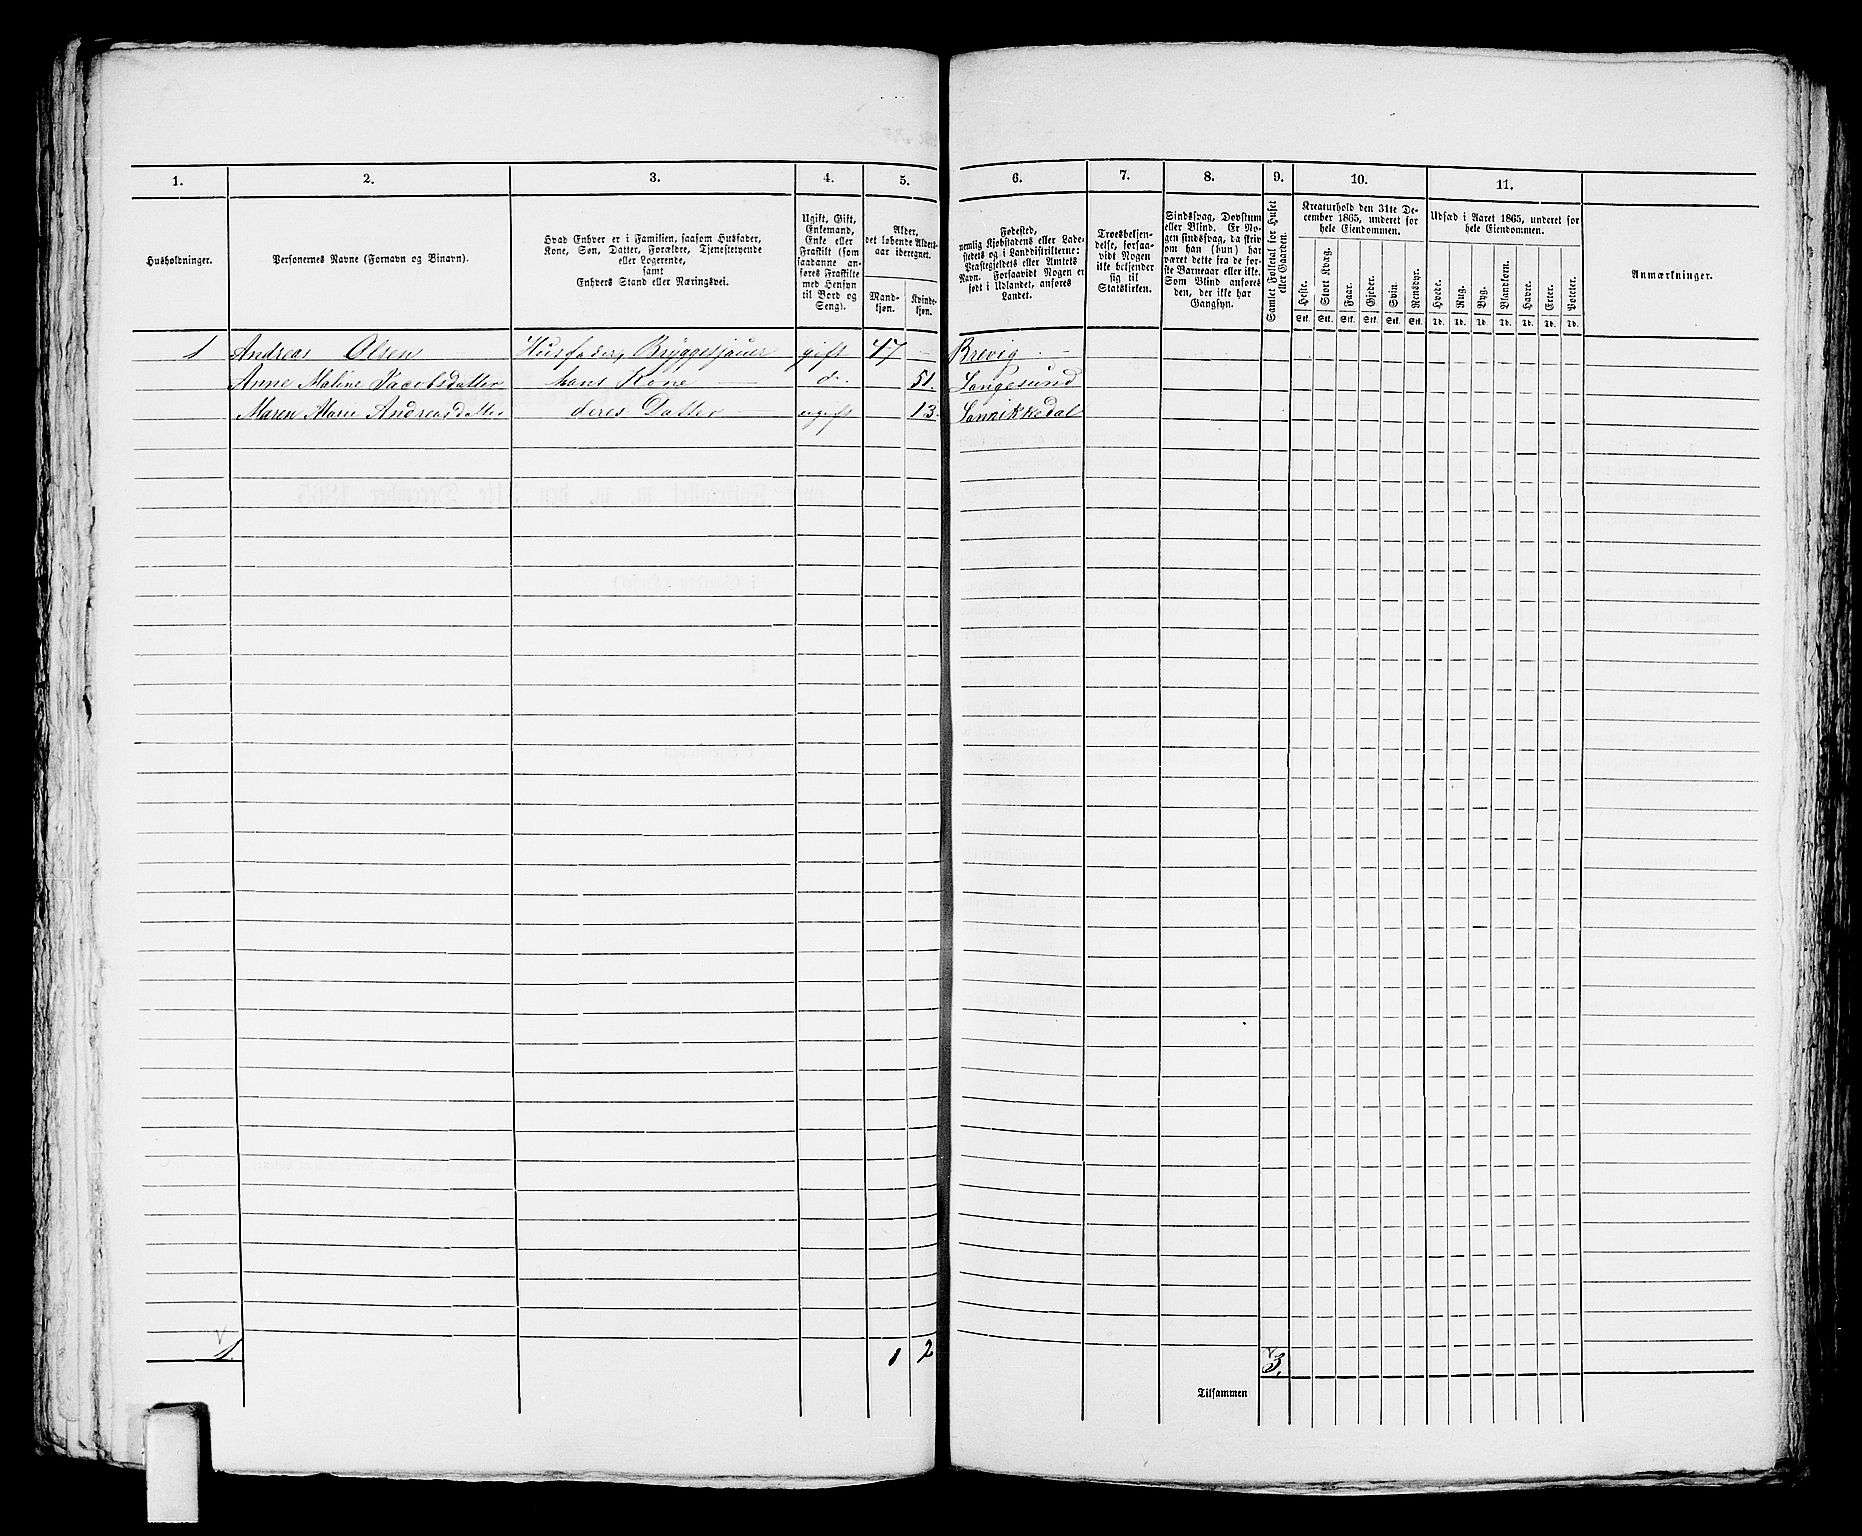 1. 2. 3. 4. 5. 6. 7. 8. 9. 10. 11.
Husholdninger.
Personernes Navne (Fornavn og Binavn).
Hvad Enhver er i Familien, saasom Husfader,
Kone, Søn, Datter, Forældre, Tjenestetyende
eller Logerende,
samt
Enhvers Stand eller Næringsvei.
Ugift, Gift,
Enkemand,
Enke eller
Fraskilt (som
saadanne an-
føres Fraskilte
med Hensyn
til Bord og
Seng).
Alder,
det løbende Alders-
aar iberegnet.
Mand-
kjøn.
Kvinde-
kjøn.
Fødested,
nemlig Kjøbstadens eller Lade-
stedets og i Landdistrikterne:
Præstegjeldets eller Amtets
Navn. Forsaavidt Nogen er
født i Udlandet, anføres
Landet.
Troesbekjen-
delse, forsaa-
vidt Nogen
ikke bekjender
sig til
Statskirken.
Sindssvag, Døvstum
eller Blind. Er No-
gen sindssvag, da skriv
om han (hun) har
været dette fra de før-
ste Barneaar eller ikke.
Som Blind anføres
den, der ikke har
Gangsyn.
Samlet Folketal for Huset
eller Gaarden.
Kreaturhold den 31te De-
cember 1865, underet for
hele Eiendommen.
Heste. Stort Kvæg. Faar. Gjeder. Svin. Rensdyr.
Stk. Stk. Stk. Stk. Stk. Stk.
Udsæd i Aaret 1865, underet for
hele Eiendommen.
Hvede. Rug. Byg. Blandkorn. Havre. Erter. Poteter.
Td. Td. Td. Td. Td. Td. Td.
Anmærkninger.
1 Andreas Olsen Husfader, Bryggesjauer gift 47 Brevig
Anne Maline Jacobsdatter hans Kone do. 51. Langesund
Maren Marie Andreasdatter deres Datter ugift 13. Sannikkedal
1. 1 2 3.
Tilsammen